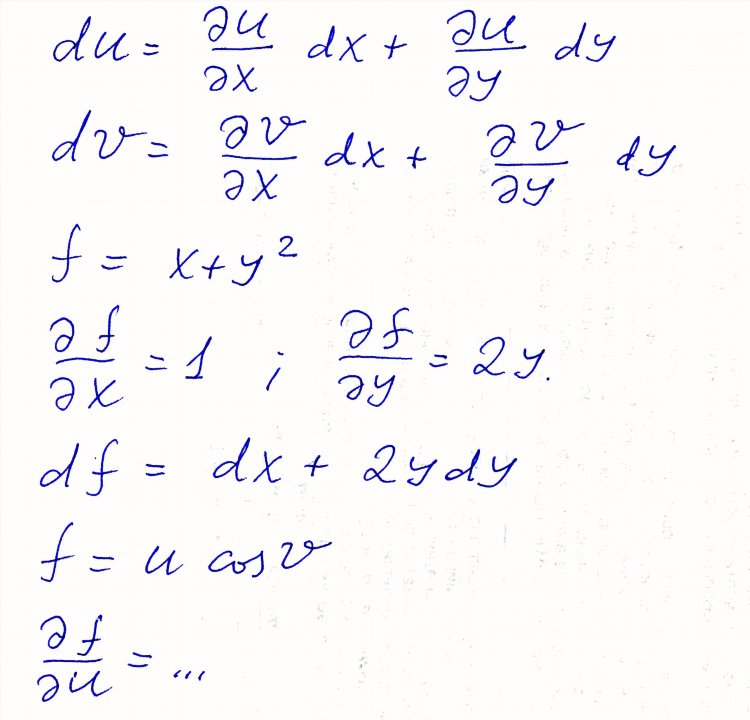 du = ∂u/∂x dx + ∂u/∂y dy
dv = ∂v/∂x dx + ∂v/∂y dy
f = x+y²
∂f/∂x = 1 ; ∂f/∂y = 2y.
df = dx + 2y dy
f = u cos v
∂f/∂u = ...